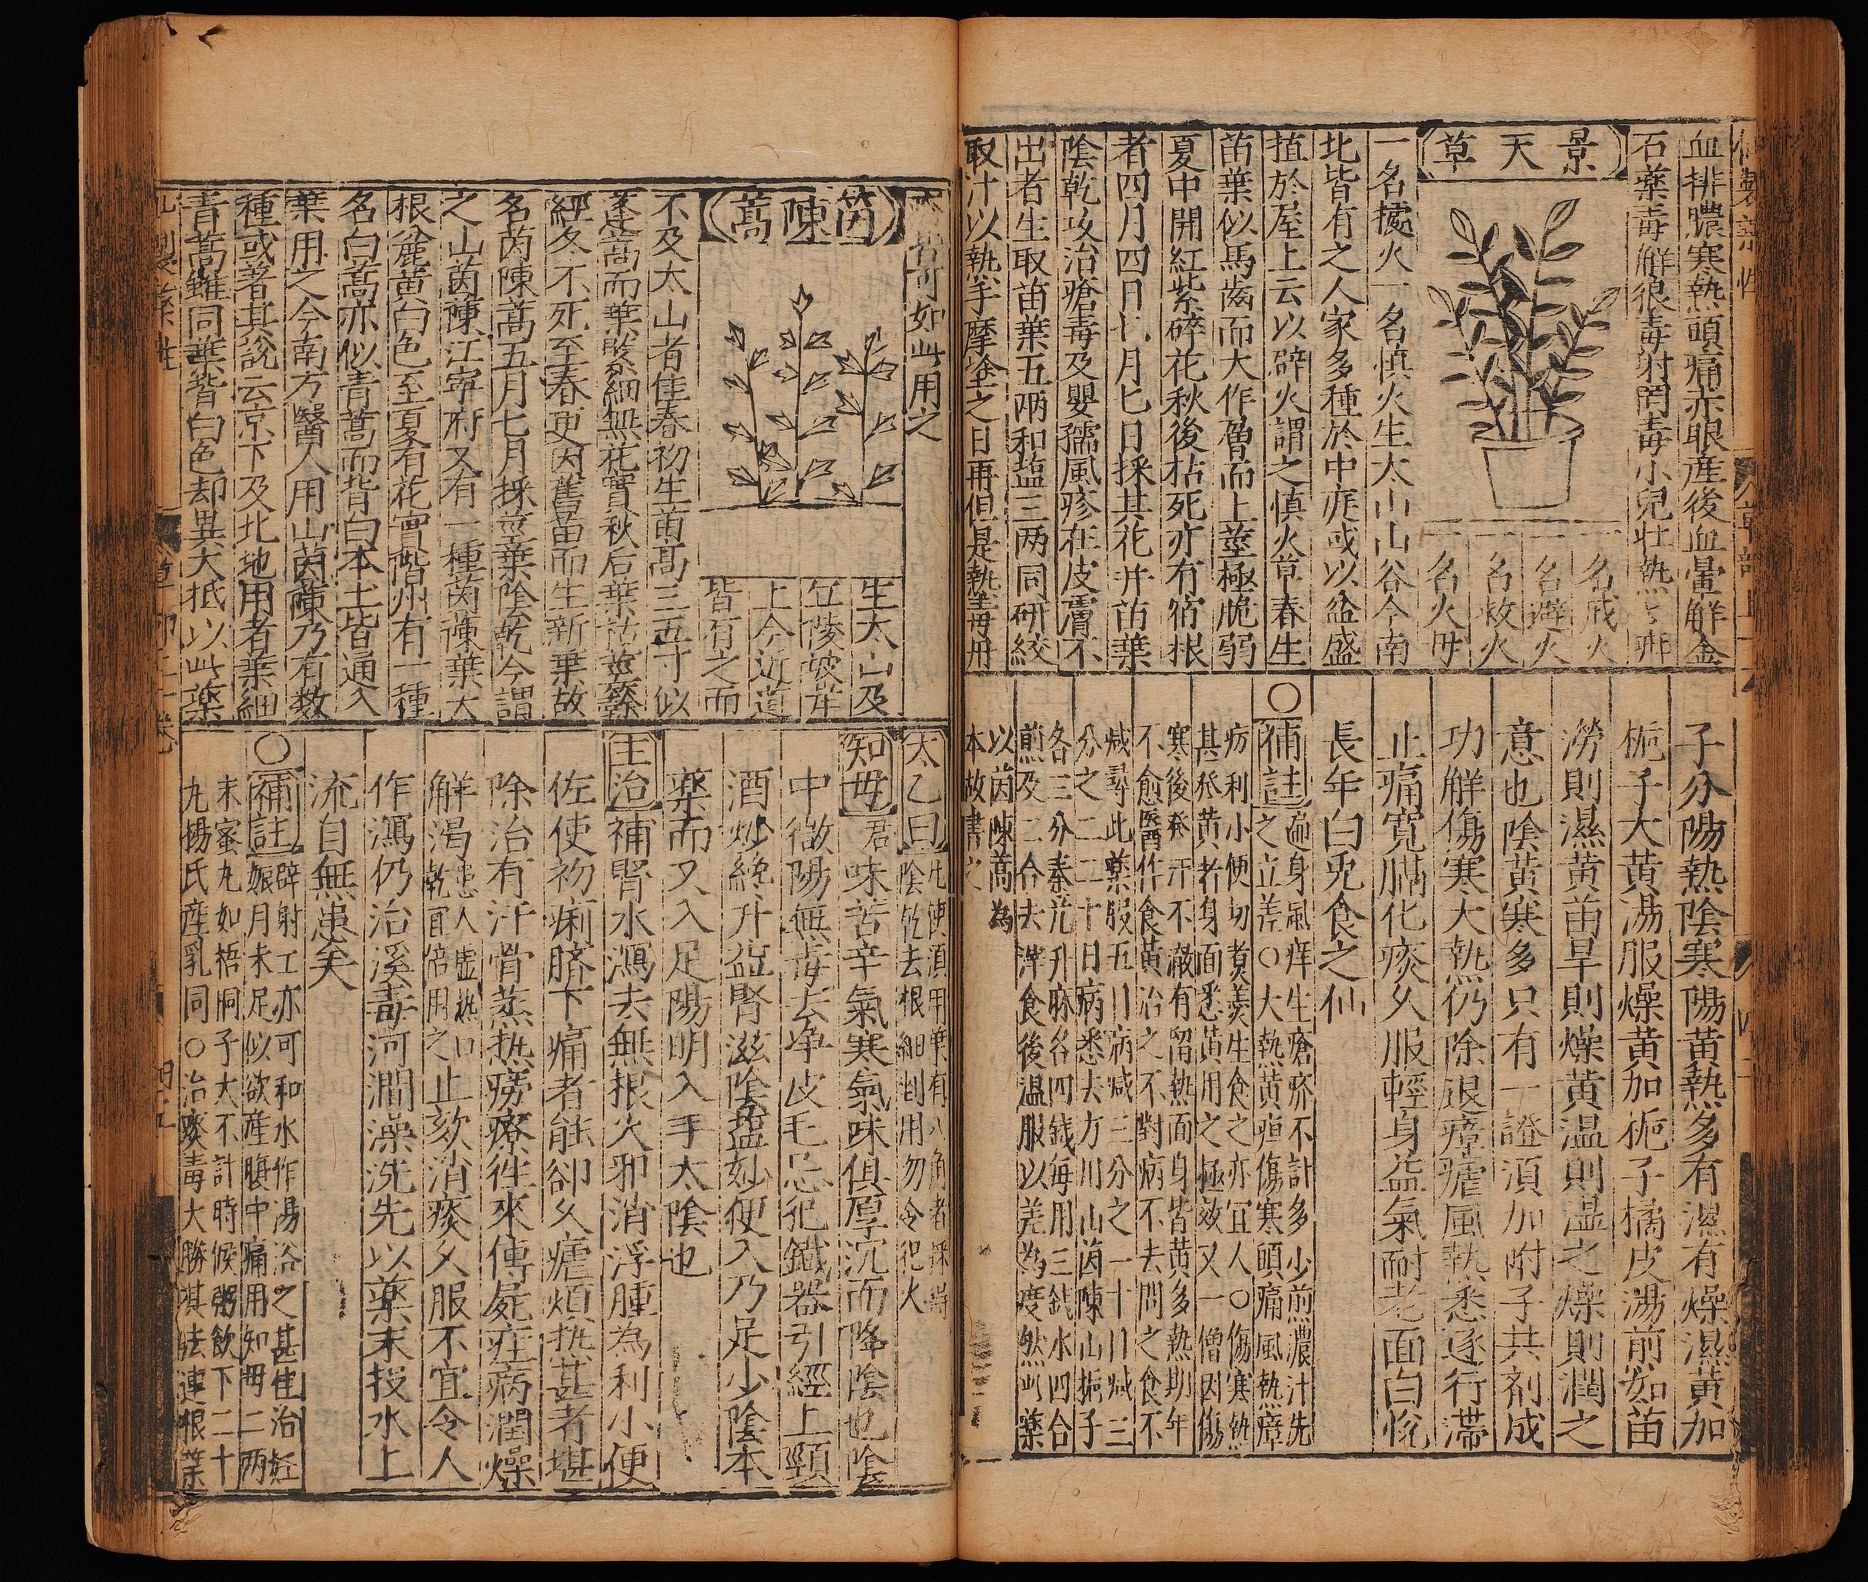 血排膿寒熱頭痛赤眼産後血暈解金
石藥毒解狼毒射罔毒小兒壮熱
景天草
一名戒火
一名避火
一名救火
一名火母
一名據火一名慎火生太山山谷今南
北皆有之人家多種於中庭或以盆盛
植於屋上云以辟火謂之慎火草春生
苗葉似馬齒而大作層而上莖極脆弱
夏中開紅紫碎花秋後枯死亦有宿根
者四月四日七月七日採其花并苗葉
陰乾攻治瘡毒及嬰孺風疹在皮膚不
出者生取苗葉五两和塩三两同研絞
取汁以熱手摩塗之日再但是熱毒毋用
子分陽熱陰寒陽黄熱多有濕有燥濕黄加
梔子大黄湯服燥黄加梔子橘皮湯煎如苗
澇則濕黄苗旱則燥黄温則温之燥則潤之
意也陰黄寒多只有一證須加附子共剤成
功解傷寒大熱仍除退瘴瘧風熱悉逐行滯
止痛寛膈化痰久服輕身益氣耐老面白悅
長年白兎食之仙
○補註
遍身風痒生瘡疥不計多少煎濃汁先
之立差○大熱黄疸傷寒頭痛風熱瘴
疠利小便切煑羮生食之亦宜人○傷寒熱
甚發黄者身面悉黄用之極效又一僧因傷
寒後發汗不澈有留熱面身皆黄多熱期年
不愈醫作食黄治之不對病不去問之食不
减尋此藥服五日病减三分之一十日减三
分之二二十日病悉去方川山茵陳山梔子
各三分秦艽升麻各四錢每用三錢水四合
煎及二合去滓食後温服以差為度然此藥
以茵陳蒿為
本故書之
如此用之
茵陳蒿
生太山及
丘陵坡岸
上今近道
皆有之而
不及太山者佳春初生苗高三五寸似
蓬蒿而葉緊細無花實秋后葉枯莖簳
經冬不死至春更因舊苗而生新葉故
名茵陳蒿五月七月採莖葉陰乾今謂
之山茵蔯江寧府又有一種茵蔯葉大
根麄黄白色至夏有花實階州有一種
名白蒿亦似青蒿而背白本土皆通入
藥用之今南方醫人用山茵蔯乃有數
種或著其説云京下及北地用者葉細
青蒿雖同葉皆白色却異大抵以此藥
太乙曰
凡使須用葉有八角者採得
陰乾去根細剉用勿令犯火
知毋
君味苦辛氣寒氣味俱厚沉而降陰也陰
中微陽無毒去净皮毛忌犯鐵器引經上頸
酒炒纔升益腎滋陰鹽妙便入乃足少陰本
藥而又入足陽明入手太陰也
主治
補腎水瀉去無根火邪消浮腫為利小便
佐使初痢臍下痛者能卻久瘧煩熱甚者堪
除治有汗骨蒸热癆瘵徃來傳屍疰病潤燥
解渴
患人虚熱口
乾宜倍用之
止欬消痰久服不宜令人
作瀉仍治溪毒河澗澡洗先以藥末投水上
流自無患矣
○補註
辟射工亦可和水作湯浴之甚佳治妊
娠月未足似欲産腹中痛用知毋二两
末蜜丸如梧桐子大不計時候粥飲下二十
丸楊氏産乳同○治癈毒大勝其法連根葉